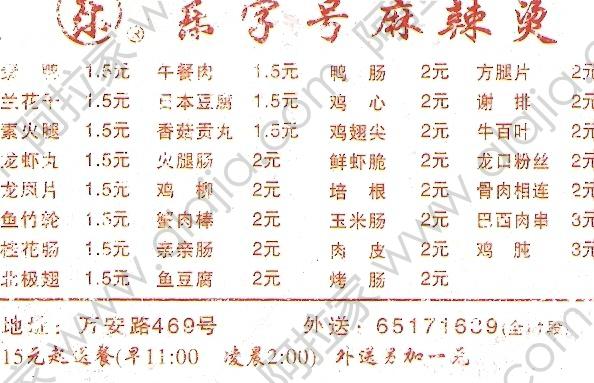 乐 乐字号麻辣烫
素鸭 1.5元 午餐肉 1.5元 鸭肠 2元 方腿片 2元
兰花干 1.5元 日本豆腐 1.5元 鸡心 2元 谢排 2元
素火腿 1.5元 香菇贡丸 1.5元 鸡翅尖 2元 牛百叶 2元
龙虾丸 1.5元 火腿肠 2元 鲜虾脆 2元 龙口粉丝 2元
龙凤片 1.5元 鸡柳 2元 培根 2元 骨肉相连 2元
鱼竹轮 1.5元 蟹肉棒 2元 玉米肠 2元 巴西肉串 3元
桂花肠 1.5元 亲亲肠 2元 肉皮 2元 鸡肫 3元
北极翅 1.5元 鱼豆腐 2元 烤肠 2元
地址：万安路469号 外送：65171689
15元起送餐(早11:00 凌晨2:00) 外送另加一元
阿拉家 www.alajia.com